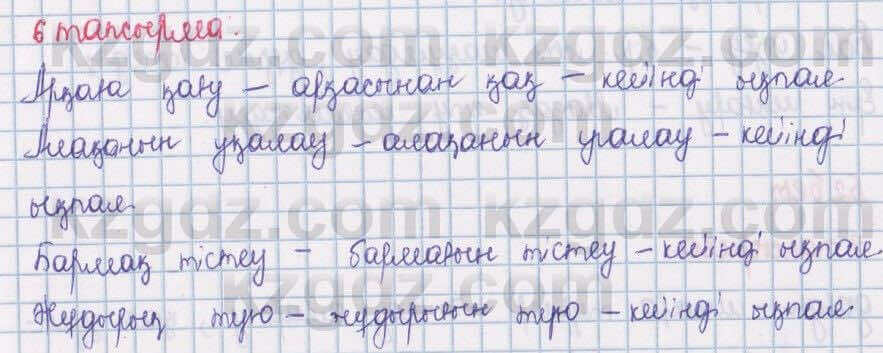 6 тапсырма.
Арқаға қағу – арқасынан қақ – кейінді ықпал.
Алақанын уқалау – алақанын уқалау – кейінді
ықпал.
Бармақ тістеу – бармағын тістеу – кейінді ықпал.
Жұдырық түю – жұдырығын түю – кейінді ықпал.
kzgdz.com kzgdz.com
kzgdz.com kzgdz.com
kzgdz.com kzgdz.com
kzgdz.com